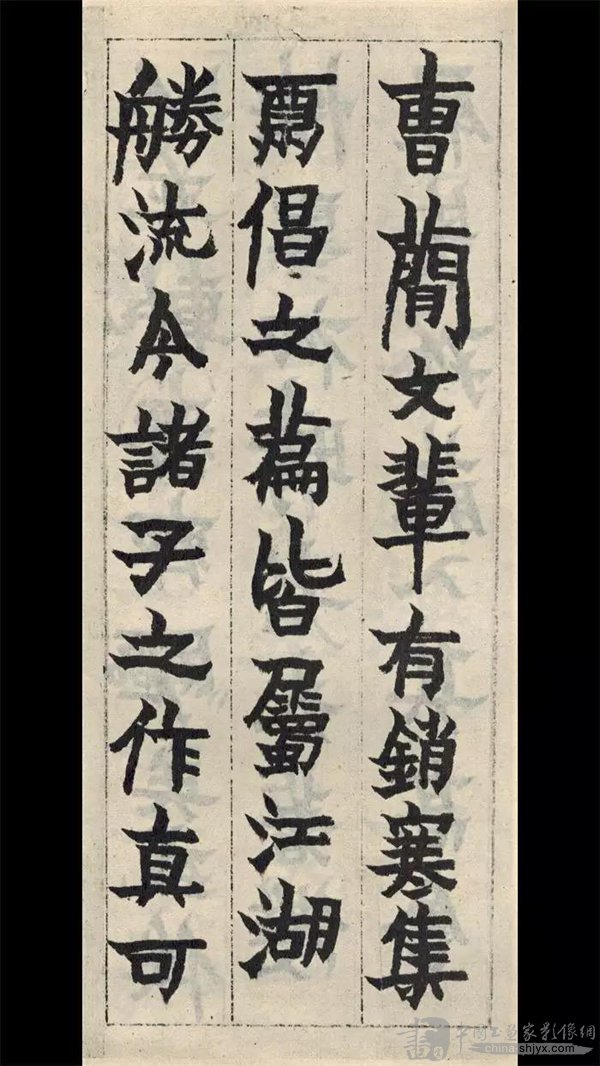 曺蕳文輩有銷寒集
爲倡之萹皆屬江湖
勝流今諸子之作真可
家影像網
china-shjyx.com